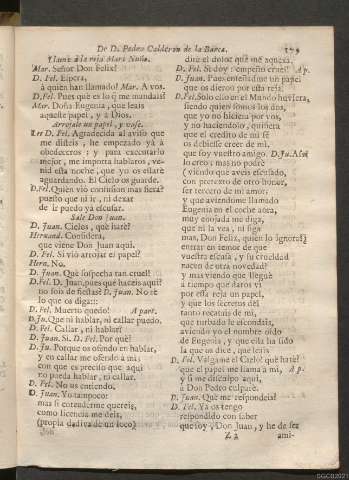 De D. Pedro Calderòn de la Barca. 179
Llama à la reja Mari Nuño.
Mar. Señor Don Felix?
D. Fel. Espera,
à quien han llamado? Mar. A vos.
D. Fel. Pues què es lo que me mandais?
Mar. Doña Eugenia, que leais
aqueste papel, y à Dios.
Arrojale un papel, y vase.
Lee D. Fel. Agradecida al aviso que
me disteis, he empezado yà à
obedeceros; y para executarlo
mejor, me importa hablaros, ve-
nid esta noche, que yo os estarè
aguardando. El Cielo os guarde.
D. Fel. Quien viò confusion mas fiera?
puesto que ni ir, ni dexar
de ir puedo yà escusar.
Sale Don Juan.
D. Juan. Cielos, què harè?
Hernand. Considera,
que viene Don Juan aqui.
D. Fel. Si viò arrojar el papel?
Hern. No.
D. Juan. Què sospecha tan cruel!
D. Fel. D. Juan, pues què haceis aqui?
no sois de fiestas? D. Juan. No sè
lo que os diga::
D. Fel. Muerto quedo! A part.
D. Ju. Que ni hablar, ni callar puedo.
D. Fel. Callar, ni hablar?
D. Juan. Si. D. Fel. Por què?
D. Ju. Porque os ofendo en hablar,
y en callar me ofendo à mi;
con que es preciso que aqui
no pueda hablar, ni callar.
D. Fel. No us entiendo.
D. Juan. Yo tampoco:
mas si entenderme quereis,
como licencia me deis,
(propia dadiva de un loco)
dirè el dolor que me aquexa.
D. Fel. Sì doy: empeño cruel! Ap.
D. Juan. Pues enseñadme un papel
que os dieron por esta reja.
D. Fel. Solo esso en el Mundo huviera,
siendo quien somos los dos,
que yo no hiciera por vos,
y no haciendolo, quisiera
que el credito de mi fè
os debiesse creer de mi,
que soy vuestro amigo. D. Ju. Assi
lo creo; mas no podrè
(viendo que aveis escusado,
con pretexto de otro honor,
ser tercero de mi amor;
y que aviendome llamado
Eugenia en el coche aora,
muy enojada me diga,
que ni la vea, ni siga
mas, Don Felix, quien lo ignora?)
entrar en temor de que
vuestra escusa, y su crueldad
nacen de otra novedad?
y mas viendo que lleguè
à tiempo que daros vi
por esta reja un papel,
y que los secretos dèl
tanto recatais de mi,
que turbado le escondais,
aviendo yo el nombre oìdo
de Eugenia, y que ella ha sido
la que os dice, que leais
D. Fel. Valgame el Cielo! què harè?
que el papel me llama à mi, Ap.
y si me disculpo aqui,
à Don Pedro culparè.
D. Juan. Què me respondeis?
D. Fel. Yà os tengo
respondido con saber
que soy, Don Juan, y he de ser
Z 2 ami-